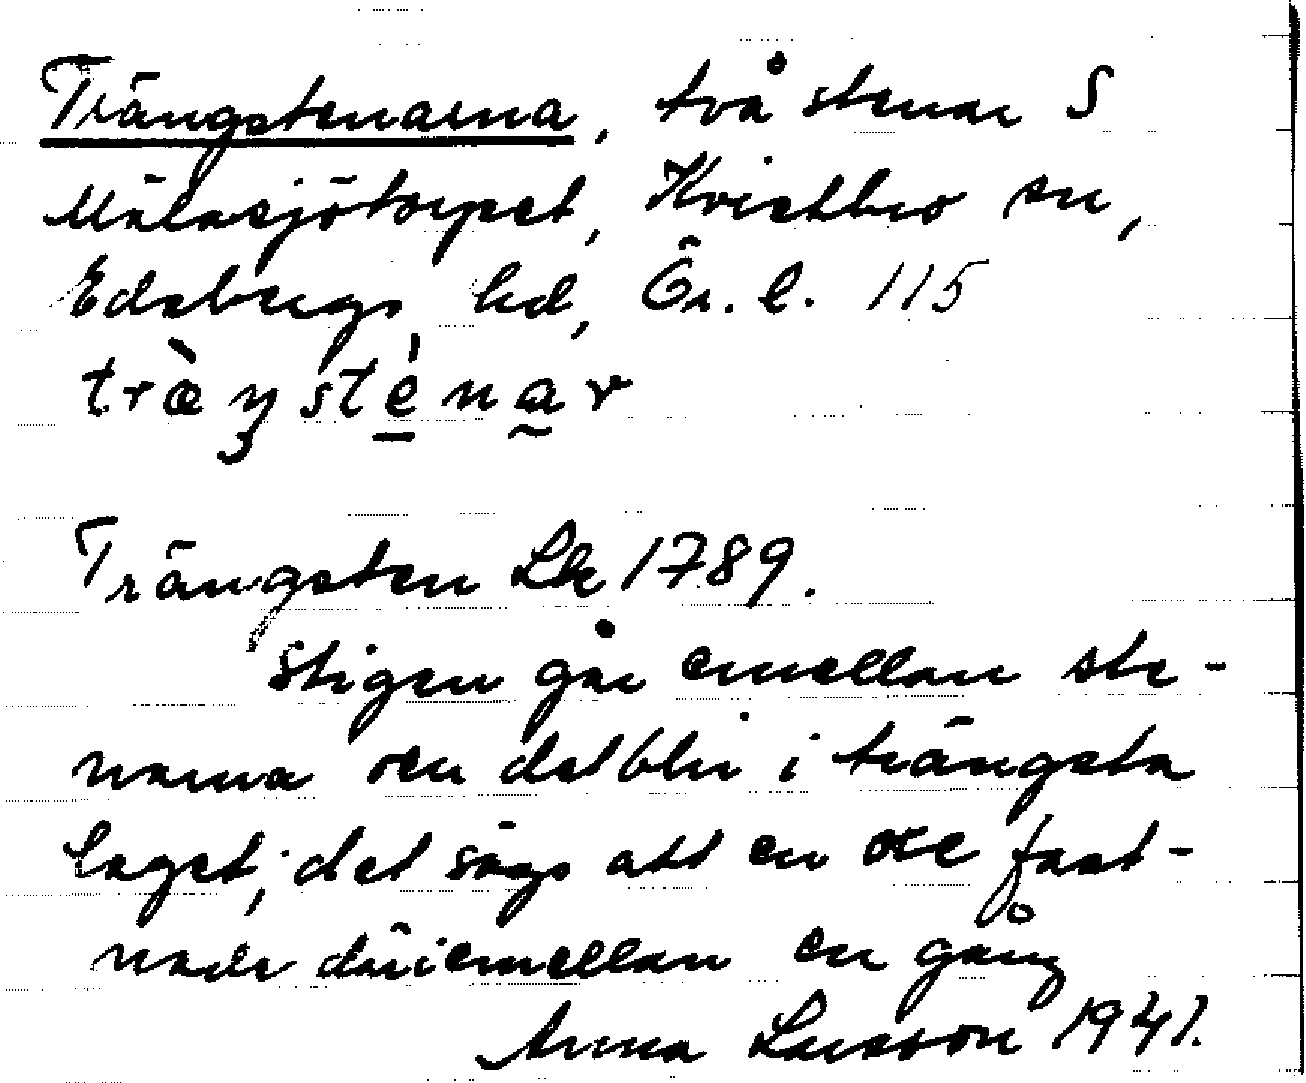 Trängstenarna, två stenar S
Mälasjötorpet, Kvistbro sn,
Edsbergs hd, Ör. l. 115
tràŋsténar
Trängsten Lk 1789.
Stigen går emellan ste-
narna och det blir i trängsta
laget; det sägs att en oxe fast-
nade däriemellan en gång
Anna Larsson 1941.